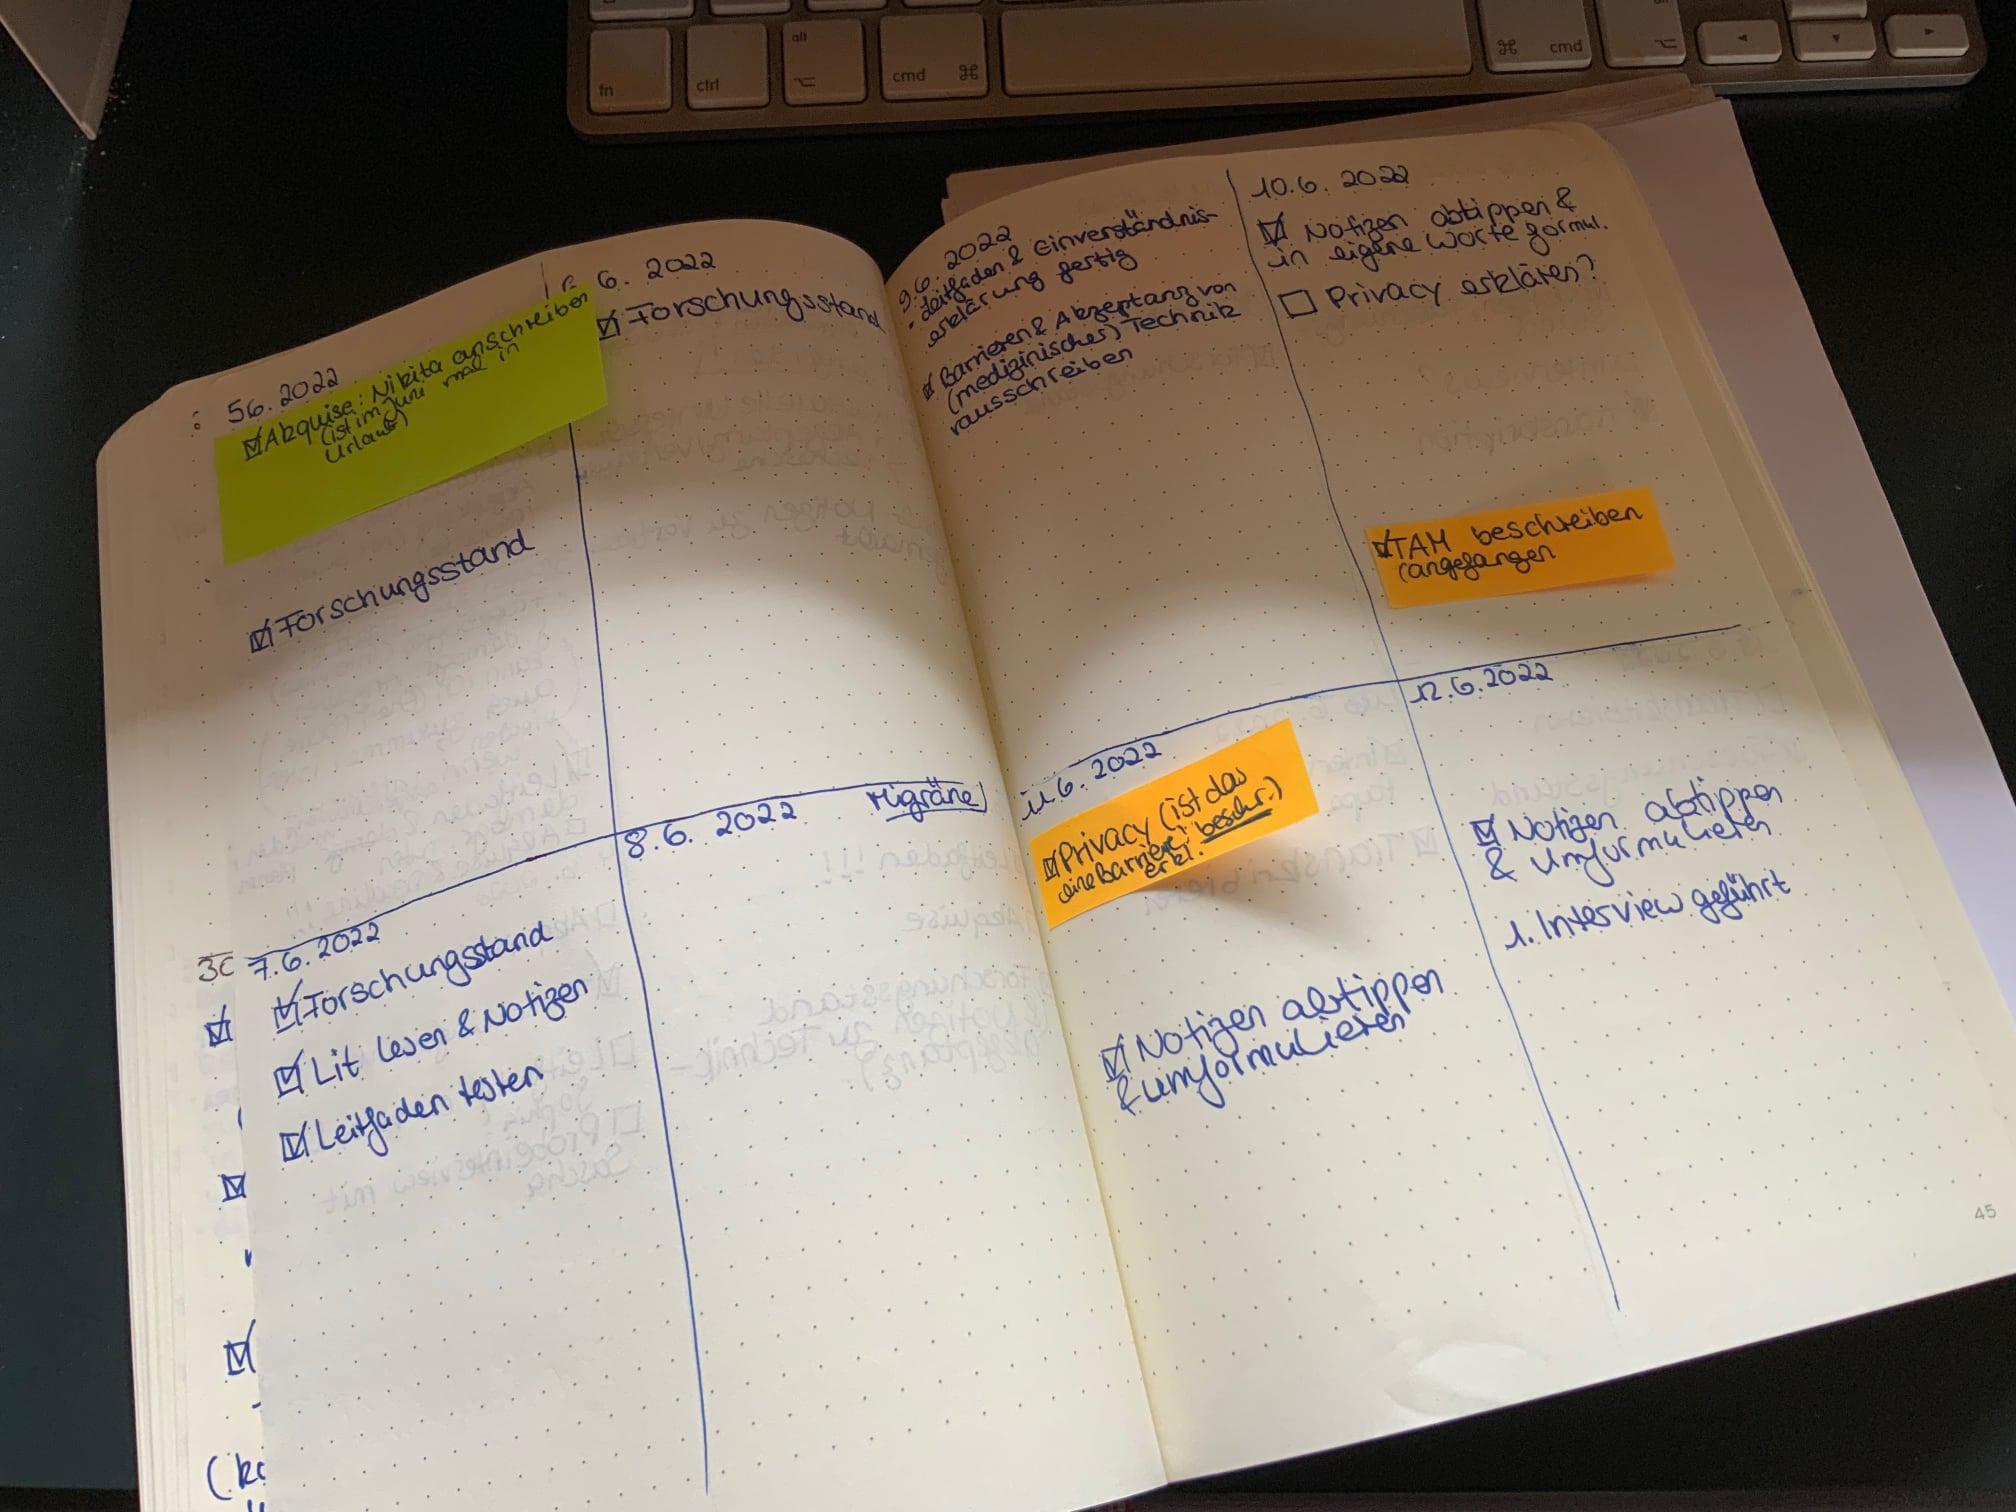 fn
ctrl
alt
cmd
cmd
alt
56.2022
Akquise: Nikita anschreiben
(ist im Juni mal in
Urlaub)
Forschungsstand
6. 2022
Forschungsstand
7.6.2022
Forschungsstand
Lit lesen & Notizen
Leitfaden testen
8.6. 2022
Migräne
9.6.2022
- Leitfaden & Einverständnis-
erklärung fertig
Barrieren & Akzeptanz von
(medizinischer) Technik
rausschreiben
10.6. 2022
Notizen abtippen &
in eigene Worte formul.
Privacy erklären?
TAM beschreiben
(angefangen
11.6. 2022
Privacy (ist das
eine Barriere? beschr.)
erkl.
Notizen abtippen
& umformulieren
12.6.2022
Notizen abtippen
& umformulieren
1. Interview geführt
45
30